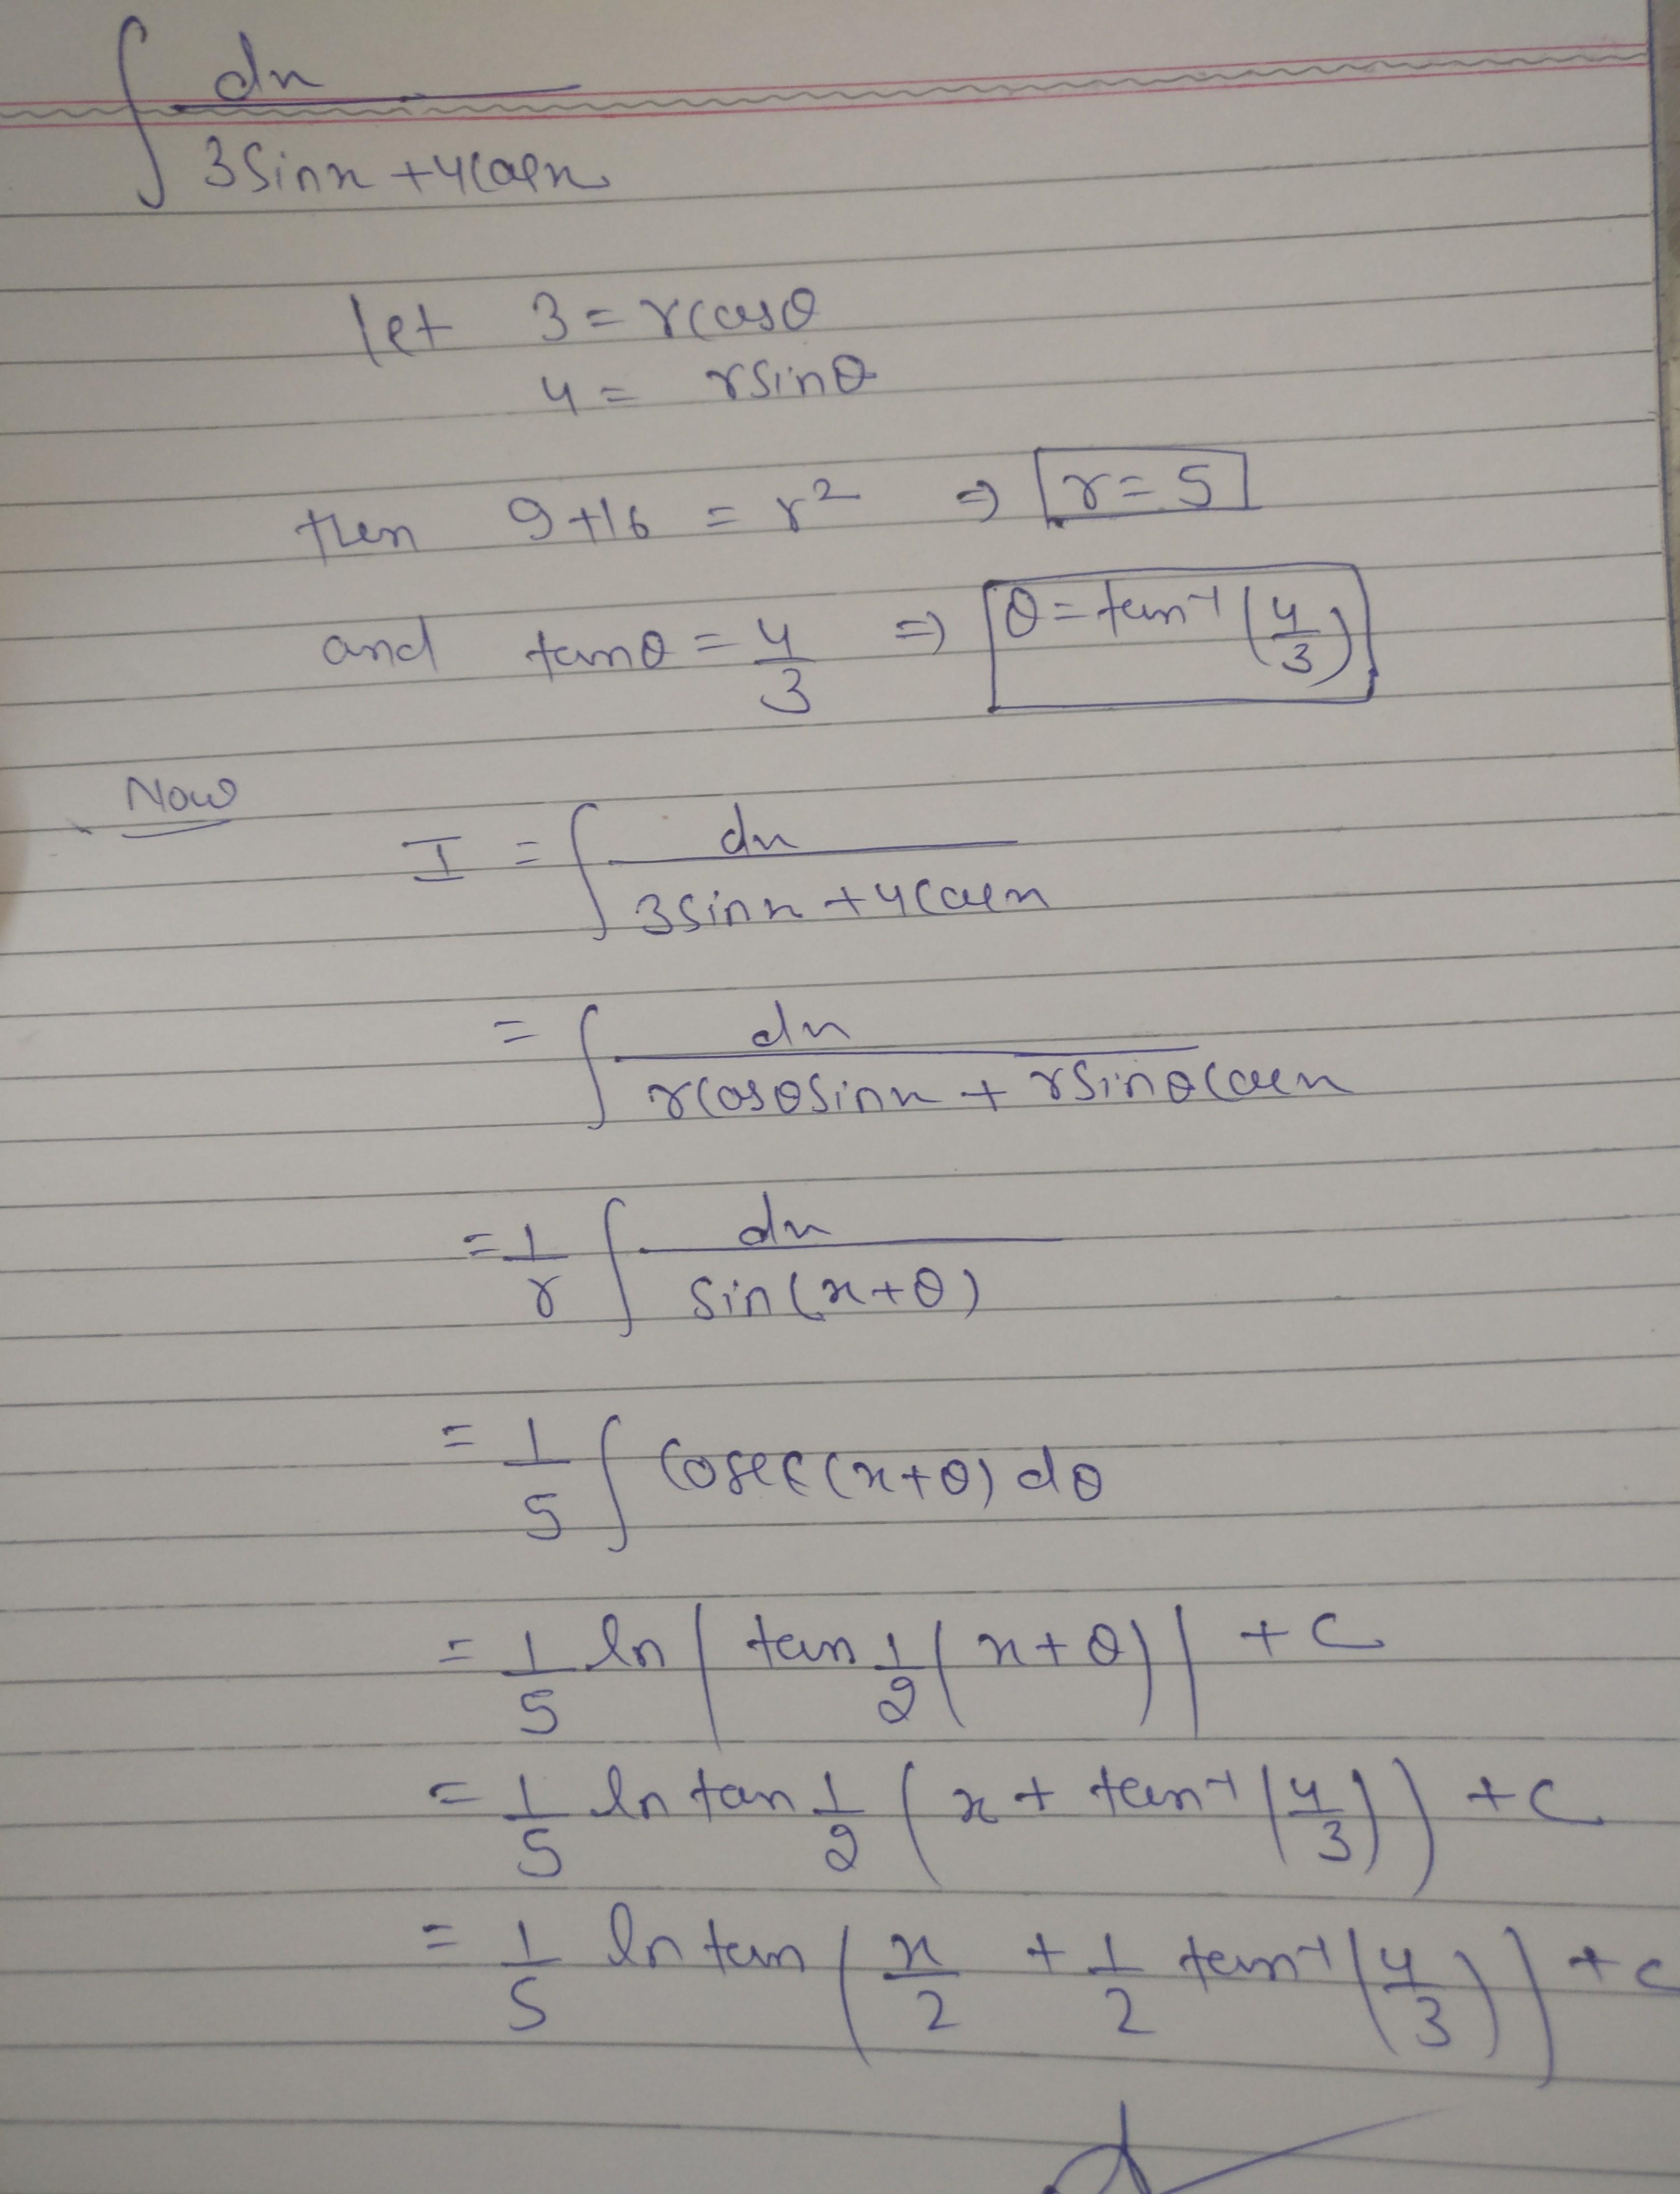 ∫ dx / (3 sin x + 4 cos x)
let 3 = r cos θ
4 = r sin θ
then 9+16 = r² ⇒ r = 5
and tan θ = 4/3 ⇒ θ = tan⁻¹(4/3)
Now
I = ∫ dx / (3 sin x + 4 cos x)
= ∫ dx / (r cos θ sin x + r sin θ cos x)
= 1/r ∫ dx / sin(x+θ)
= 1/5 ∫ cosec(x+θ) dθ
= 1/5 ln | tan 1/2 (x+θ) | + c
= 1/5 ln tan 1/2 (x + tan⁻¹(4/3)) + c
= 1/5 ln tan (x/2 + 1/2 tan⁻¹(4/3)) + c